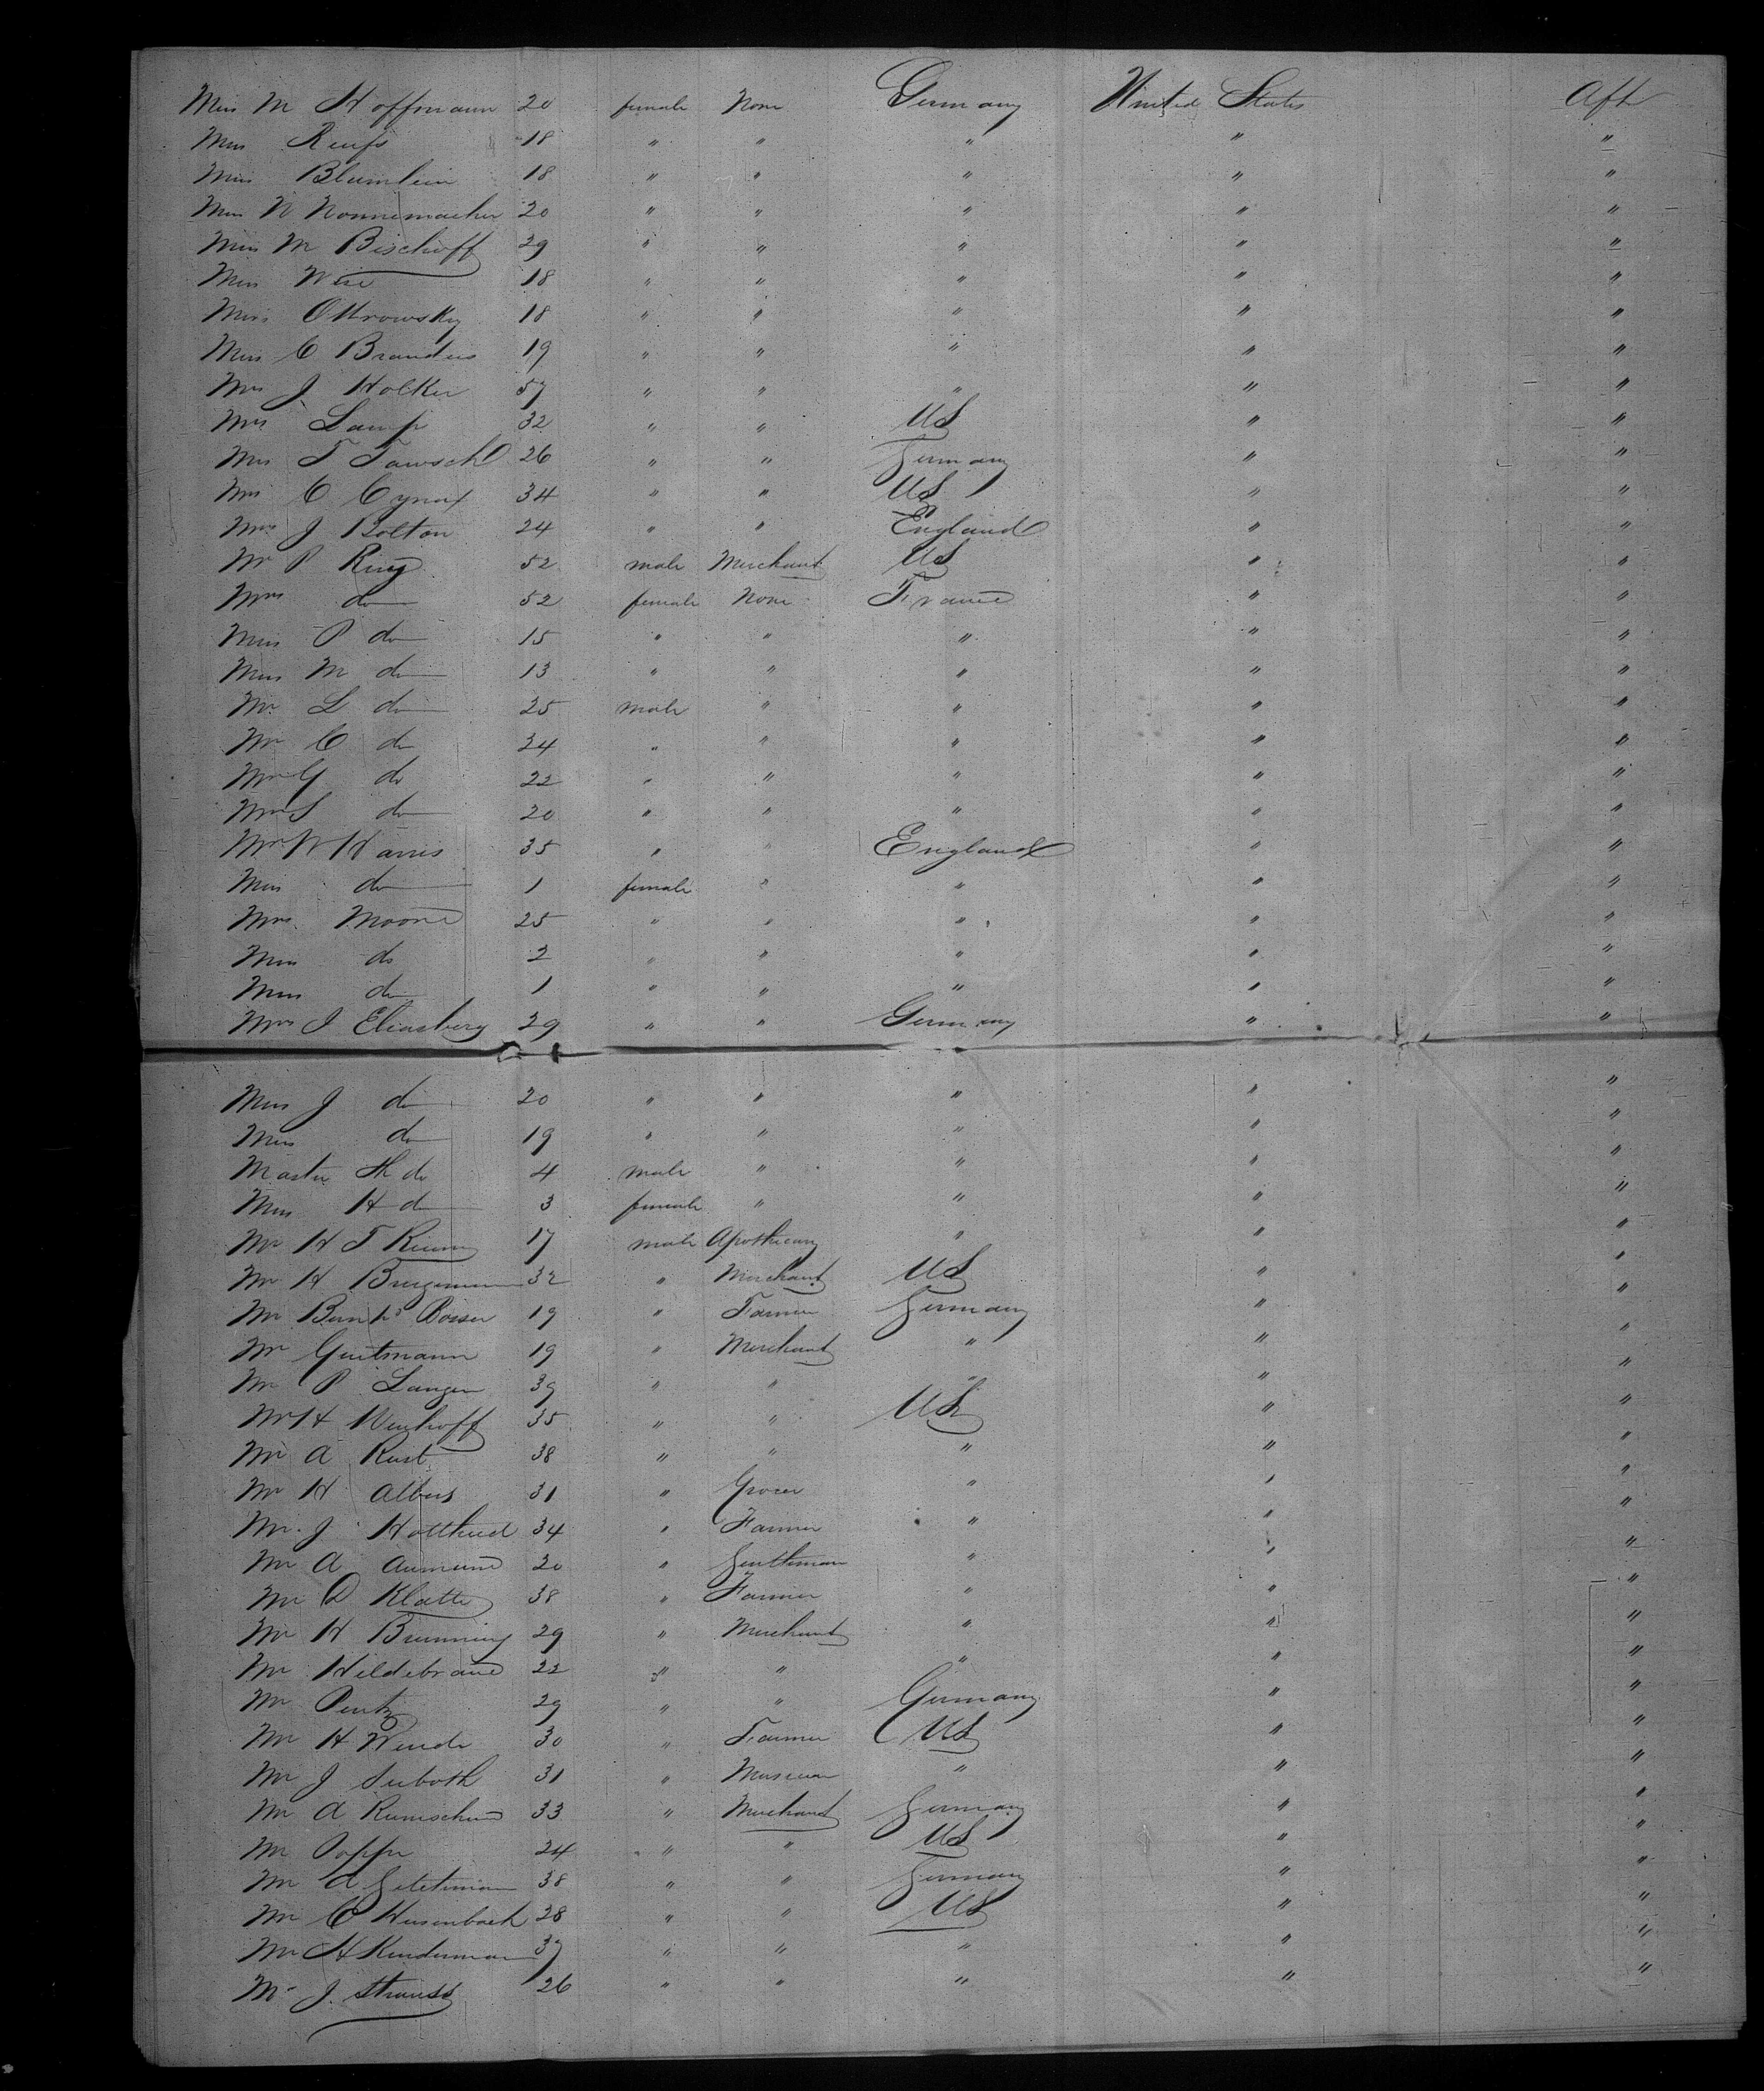 Miss M Hoffmann 20 female None Germany United States Aft
Miss Reufs 18 " " " " "
Miss Blumlein 18 " " " " "
Miss N Nonnemacher 20 " " " " "
Miss M Bischoff 29 " " " " "
Miss Wise 18 " " " " "
Miss Ottrowsky 18 " " " " "
Miss C Brandeis 19 " " " " "
Mrs J Holker 57 " " " " "
Mrs Lamp 32 " " US " "
Mrs T Tawschl 26 " " Germany " "
Mrs C Cynax 34 " " US " "
Mrs J Bolton 24 " " England " "
Mr P Ring 52 male Merchant US " "
Mrs do 52 female None France " "
Miss P do 15 " " " " "
Miss M do 13 " " " " "
Mr L do 25 male " " " "
Mr C do 24 " " " " "
Mr G do 22 " " " " "
Mr S do 20 " " " " "
Mr W Harris 35 " " England " "
Miss do 1 female " " " "
Mrs Moore 25 " " " " "
Miss do 2 " " " " "
Miss do 1 " " " " "
Mrs J Eliasberg 29 " " Germany " "
Miss J do 20 " " " " "
Miss do 19 " " " " "
Master H do 4 male " " " "
Miss H do 3 female " " " "
Mr H T 17 male Apothecary " " "
Mr H Bruggemann 32 " Merchant US " "
Mr Bernhd Boiser 19 " Farmer Germany " "
Mr Guttmann 19 " Merchant " " "
Mr P Langen 39 " " " " "
Mr H Weuhoff 35 " " US " "
Mr A Rust 38 " " " " "
Mr H Albers 31 " Grocer " " "
Mr J 34 " Farmer " " "
Mr A Aumund 20 " Gentleman " " "
Mr D Klatte 38 " Farmer " " "
Mr H Brunning 29 " Merchant " " "
Mr Hildebrand 22 " " " " "
Mr Pentz 29 " " Germany " "
Mr H Wende 30 " Farmer US " "
Mr J Seeboth 31 " " " "
Mr A 33 " Merchant Germany " "
Mr Poppe 24 " " US " "
Mr A 38 " " Germany " "
Mr C Heusenbach 28 " " US " "
Mr H Kinderman 37 " " " " "
Mr J. Strauss 26 " " " " "